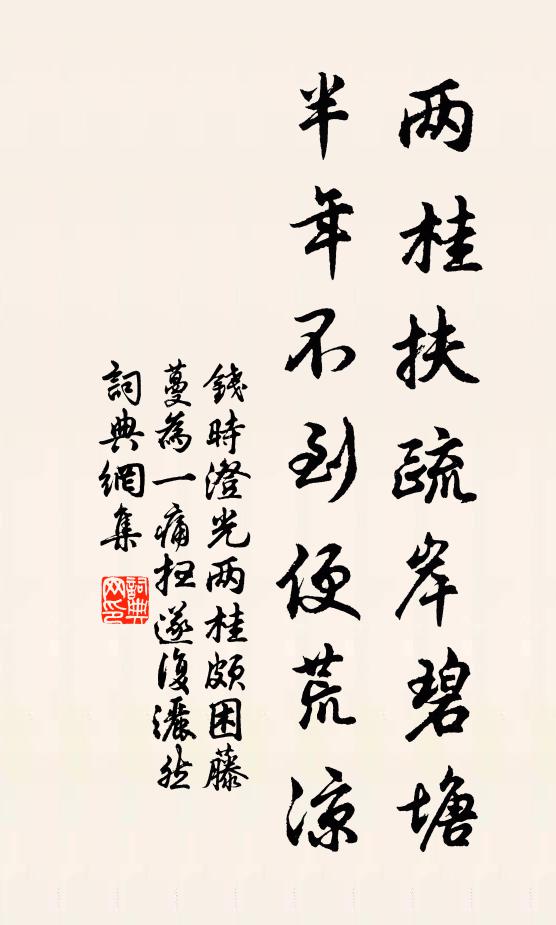 两桂扶疏岸碧塘
半年不到便荒凉
錢時澄光两桂頗困藤
蔓為一痛扫遂復灑然
詞典網集
詞典
网印